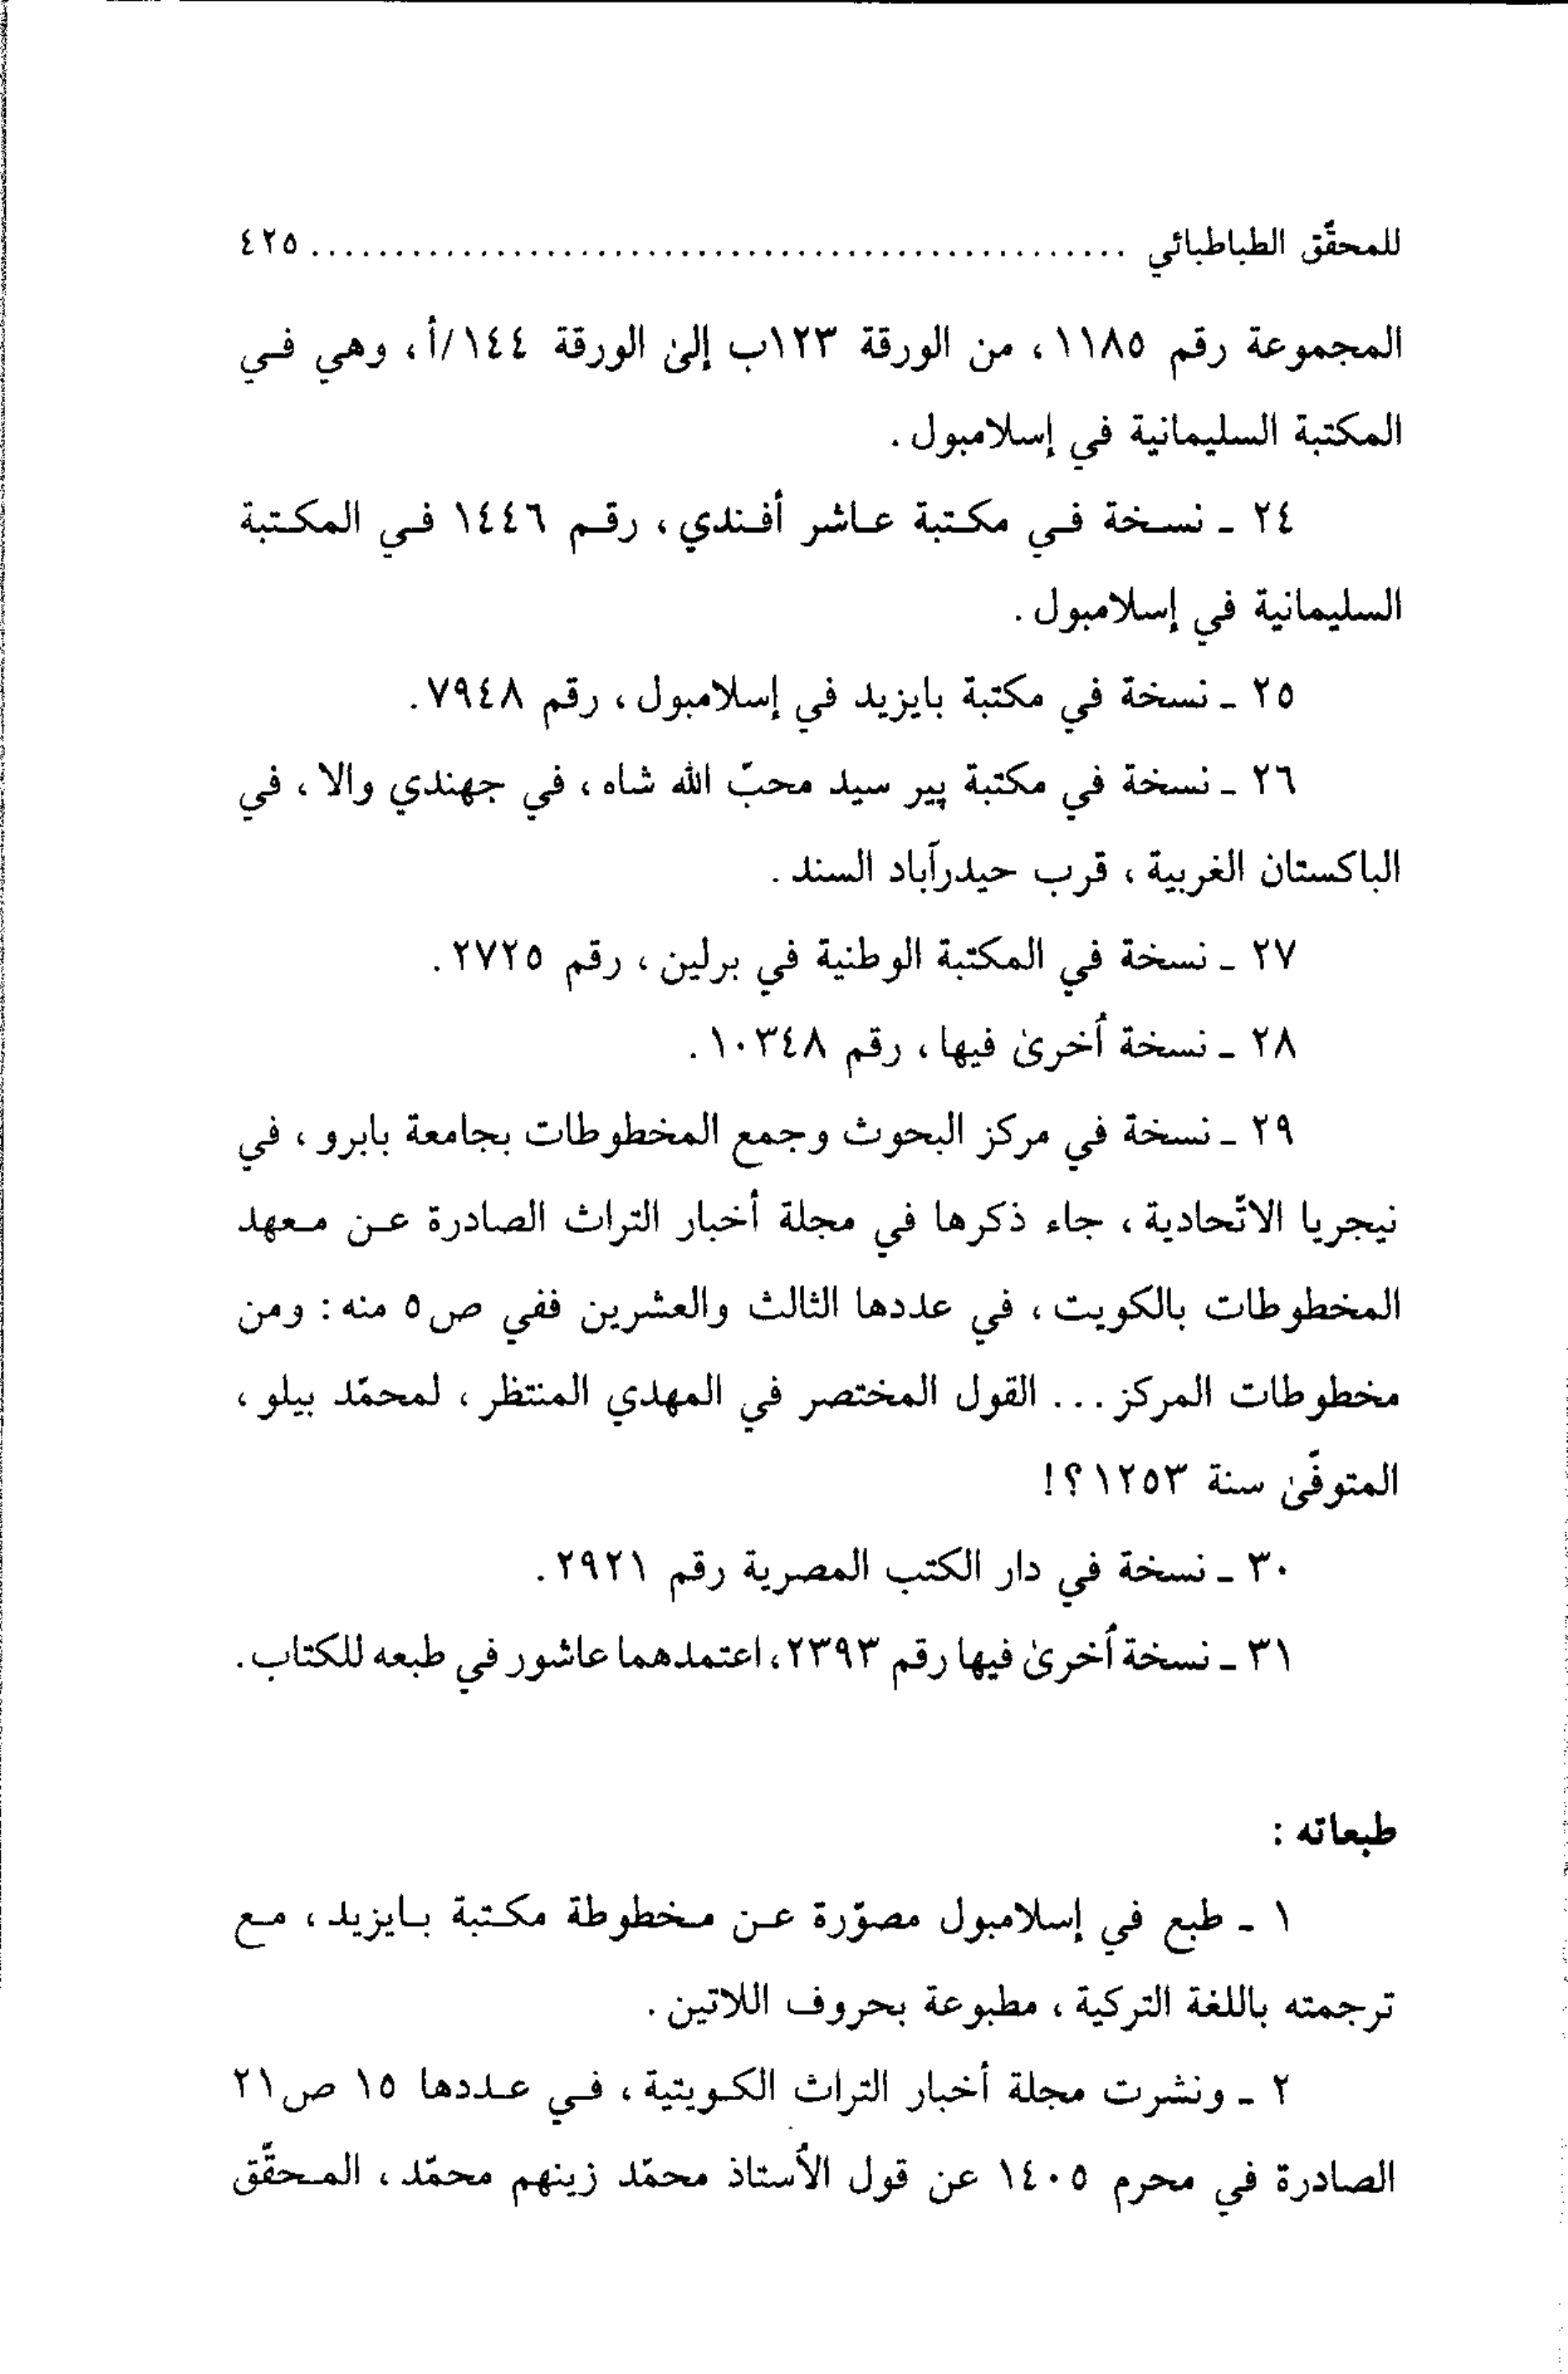 للمحقّق الطباطبائي ................................................. ٤٢٥
المجموعة رقم ١١٨٥ ، من الورقة ١٢٣ب إلىٰ الورقة ١٤٤/أ ، وهي في
المكتبة السليمانية في إسلامبول .
٢٤ ـ نسخة في مكتبة عاشر أفندي ، رقم ١٤٤٦ في المكتبة
السليمانية في إسلامبول .
٢٥ ـ نسخة في مكتبة بايزيد في إسلامبول ، رقم ٧٩٤٨ .
٢٦ ـ نسخة في مكتبة پير سيد محبّ الله شاه ، في جهندي والا ، في
الباكستان الغربية ، قرب حيدرآباد السند .
٢٧ ـ نسخة في المكتبة الوطنية في برلين ، رقم ٢٧٢٥ .
٢٨ ـ نسخة أُخرىٰ فيها ، رقم ١٠٣٤٨ .
٢٩ ـ نسخة في مركز البحوث وجمع المخطوطات بجامعة بابرو ، في
نيجريا الاتّحادية ، جاء ذكرها في مجلة أخبار التراث الصادرة عن معهد
المخطوطات بالكويت ، في عددها الثالث والعشرين ففي ص٥ منه : ومن
مخطوطات المركز ... القول المختصر في المهدي المنتظر ، لمحمّد بيلو ،
المتوفّىٰ سنة ١٢٥٣ ؟!
٣٠ ـ نسخة في دار الكتب المصرية رقم ٢٩٢١ .
٣١ ـ نسخة أُخرىٰ فيها رقم ٢٣٩٣ ، اعتمدهما عاشور في طبعه للكتاب .
طبعاته :
١ ـ طبع في إسلامبول مصوّرة عن مخطوطة مكتبة بايزيد ، مع
ترجمته باللغة التركية ، مطبوعة بحروف اللاتين .
٢ ـ ونشرت مجلة أخبار التراث الكويتية ، في عددها ١٥ ص٢١
الصادرة في محرم ١٤٠٥ عن قول الأُستاذ محمّد زينهم محمّد ، المحقّق